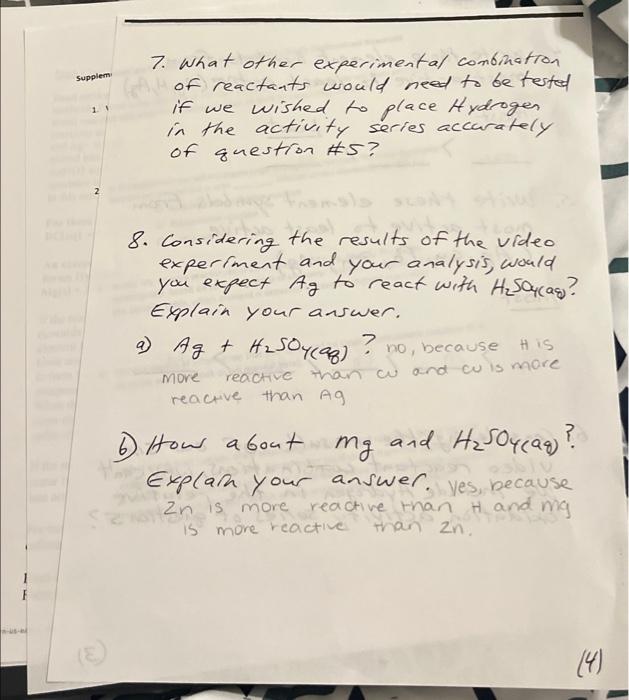 7. What other experimental combination
Supplem
of reactants would need to be tested
1.
if we wished to place Hydrogen
in the activity series accurately
of question #5?
2
8. Considering the results of the video
experiment and your analysis, would
you expect Ag to react with H₂SO₄(aq)?
Explain your answer.
a) Ag + H₂SO₄(aq)? no, because H is
more reactive than cu and cu is more
reactive than Ag
b) How about mg and H₂SO₄(aq)?
Explain your answer. yes, because
Zn is more reactive than H and mg
is more reactive than Zn.
(3)
(4)